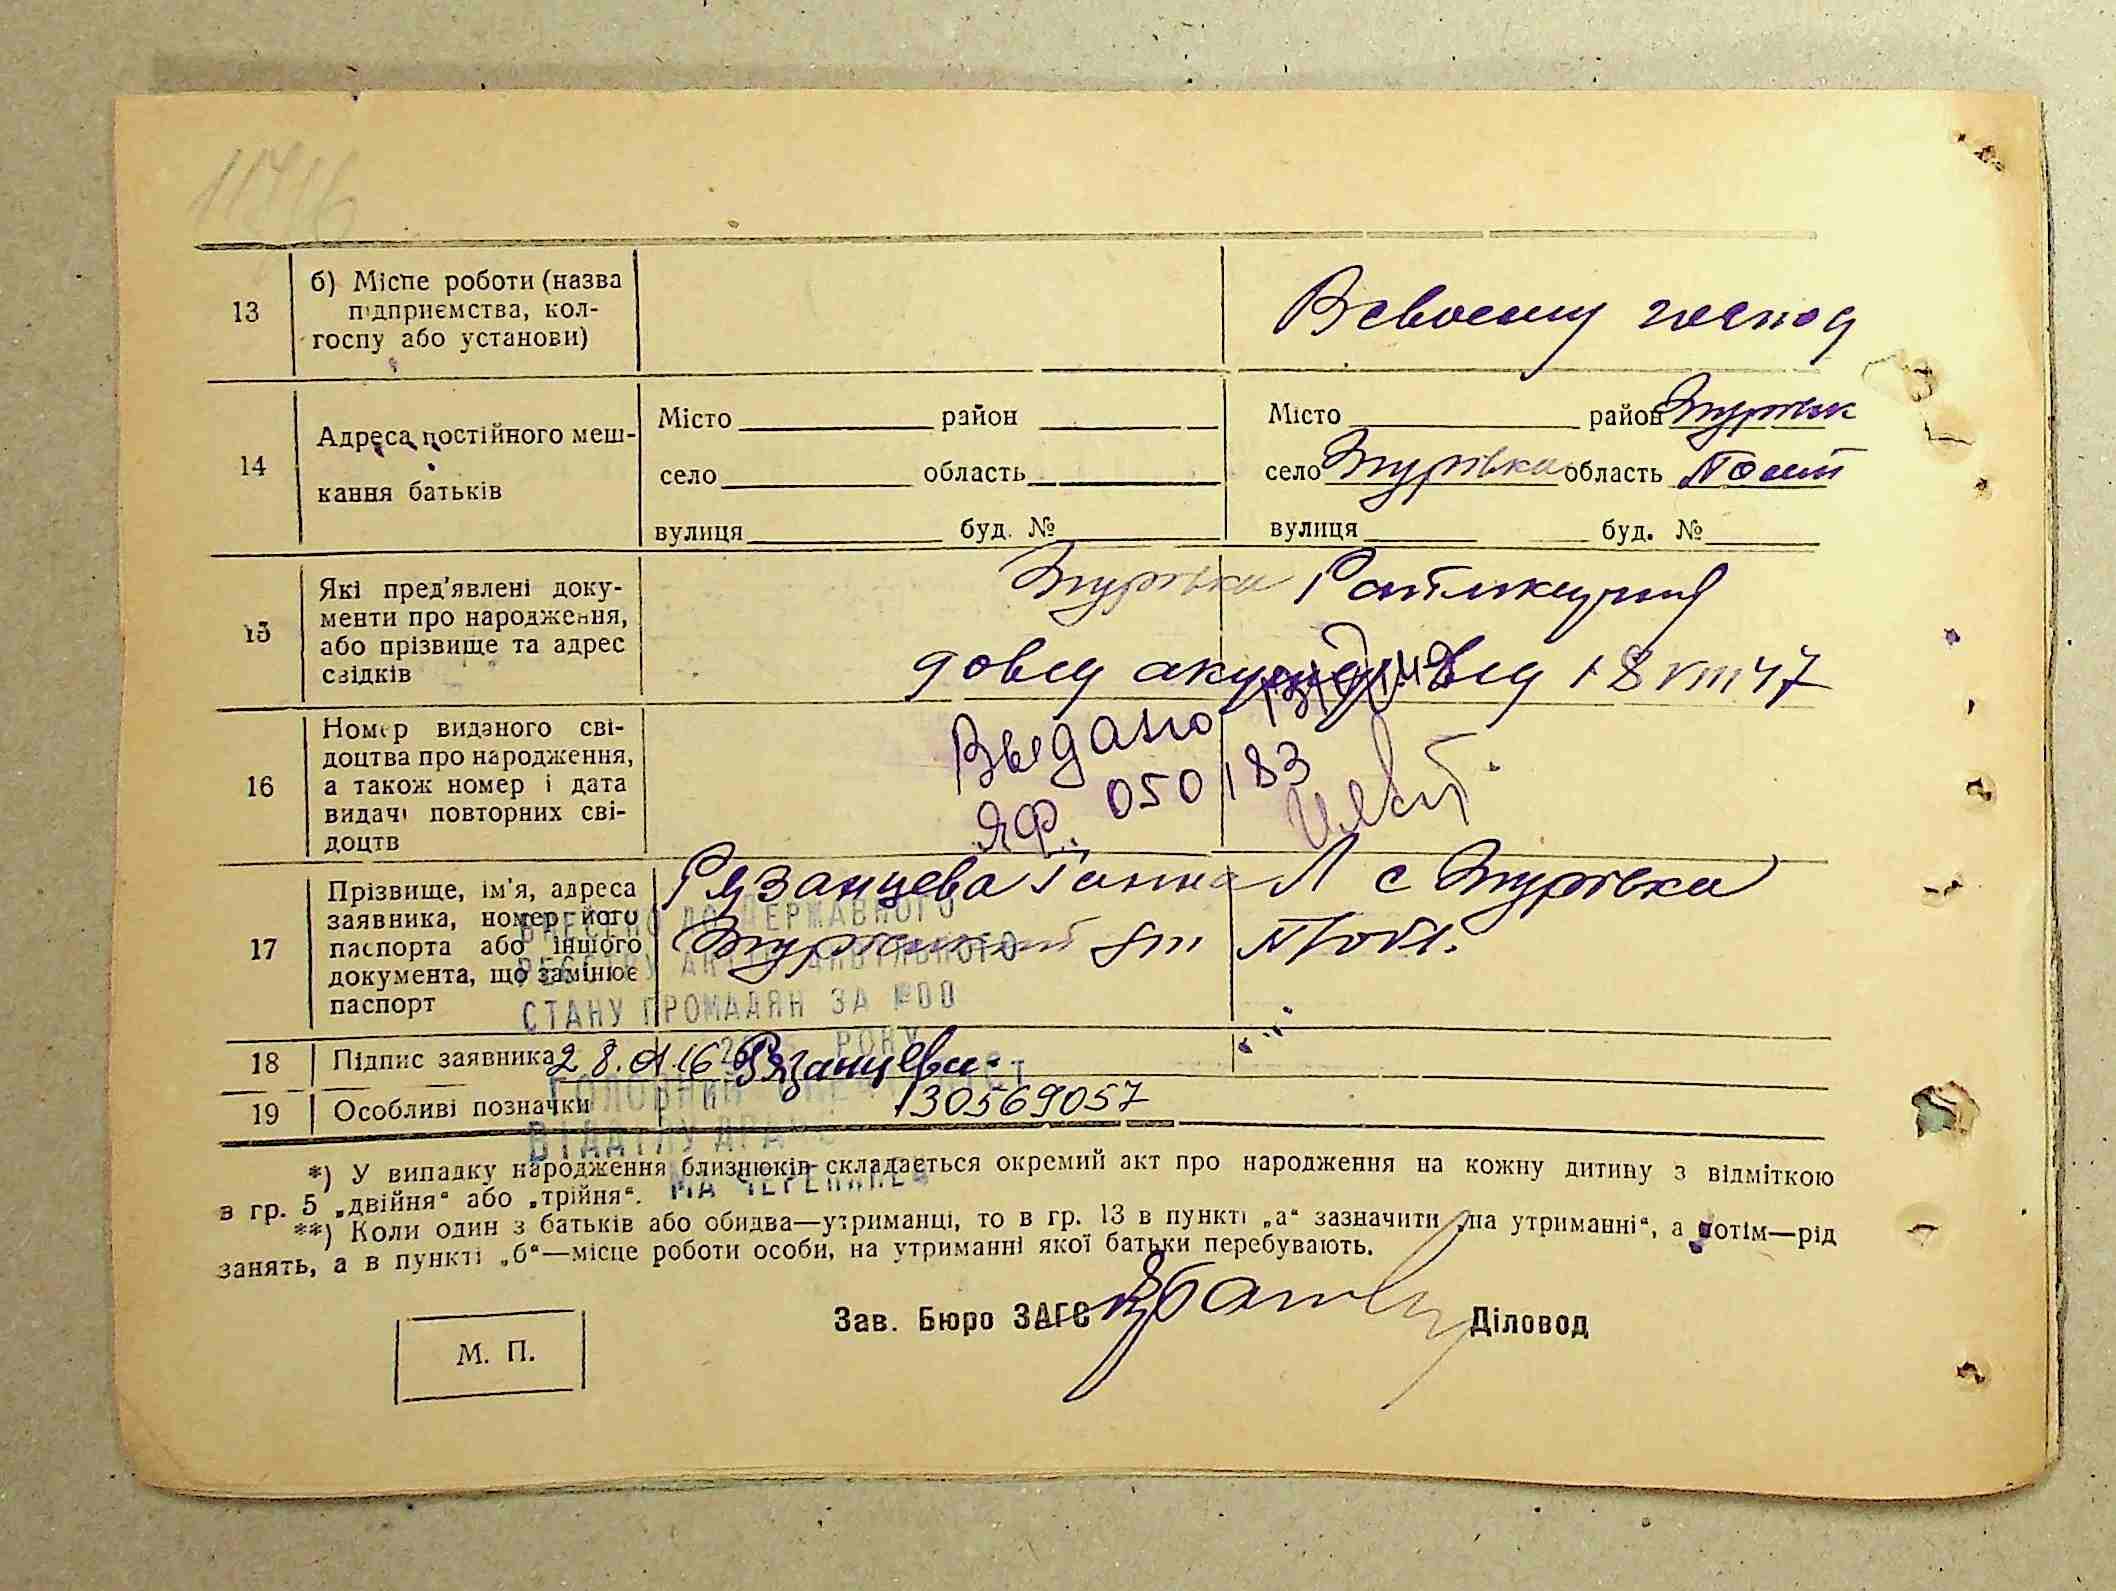 13
б) Місце роботи (назва
підприємства, кол-
госпу або установи)
В своєму господ
14
Адреса постійного меш-
кання батьків
Місто район
село область
вулиця буд. №
Місто район Згурівськ
село Згурівка область Полт
вулиця буд. №
15
Які пред'явлені доку-
менти про народження,
або прізвище та адрес
свідків
Згурівка
довід від 18 VIII 47
16
Номер виданого сві-
доцтва про народження,
а також номер і дата
видачі повторних сві-
доцтв
Выдано
ЯФ. 050183
17
Прізвище, ім'я, адреса
заявника, номер його
паспорта або іншого
документа, що замінює
паспорт
Рязанцева Ганна Л с Згурівка
Згурівський
ВНЕСЕНО ДО ДЕРЖАВНОГО
РЕЄСТРУ АКТІВ ЦИВІЛЬНОГО
СТАНУ ГРОМАДЯН ЗА №00
РОКУ
18
Підпис заявника
Рязанцева
19
Особливі позначки
130569057
ГОЛОВНИЙ
ВІДДІЛУ
*) У випадку народження близнюків складається окремий акт про народження на кожну дитину з відміткою
в гр. 5 „двійня“ або „трійня“.
**) Коли один з батьків або обидва—утриманці, то в гр. 13 в пункті „а“ зазначити „на утриманні“, а потім—рід
занять, а в пункті „б“—місце роботи особи, на утриманні якої батьки перебувають.
Зав. Бюро ЗАГС
Діловод
М. П.